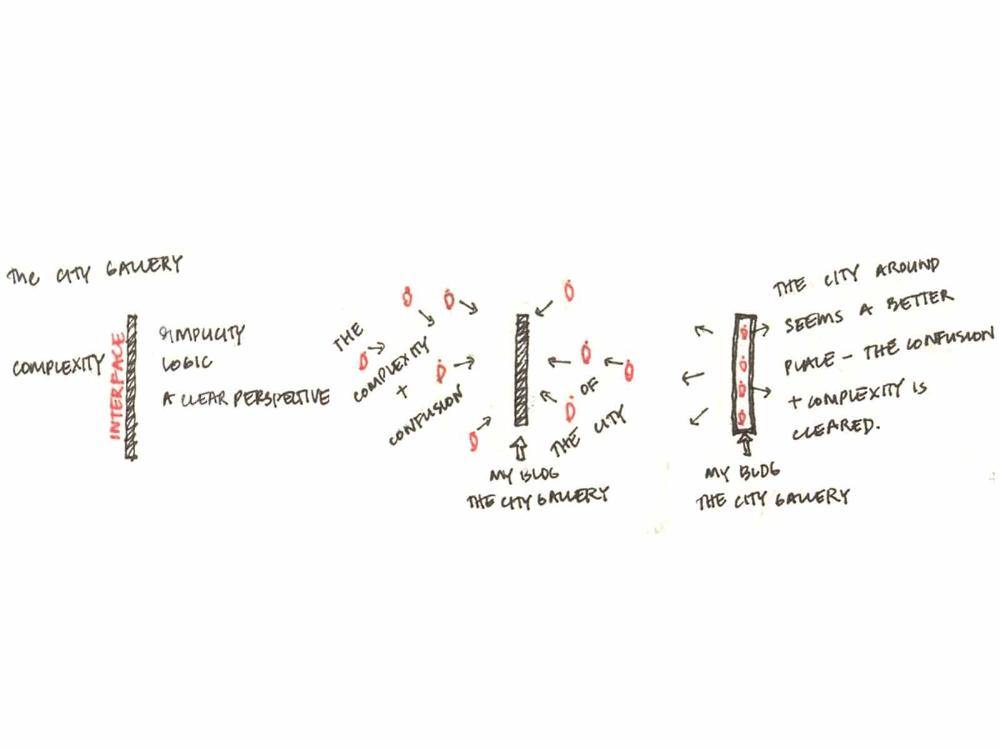 The CITY GALLERY
COMPLEXITY
INTERFACE
SIMPLICITY
LOGIC
A CLEAR PERSPECTIVE
THE
COMPLEXITY
+
CONFUSION
OF
THE CITY
MY BLDG
THE CITY GALLERY
THE CITY AROUND
SEEMS A BETTER
PLACE - THE CONFUSION
+ COMPLEXITY IS
CLEARED.
MY BLDG
THE CITY GALLERY